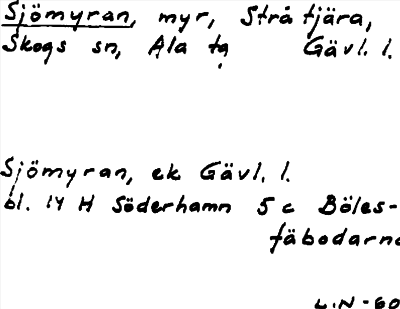 Sjömyran, myr, Stråtjära,
Skogs sn, Ala tg Gävl. l.
Sjömyran, ek Gävl. l.
bl. 14 H Söderhamn 5 c Böles-
fäbodarna
L.N-60